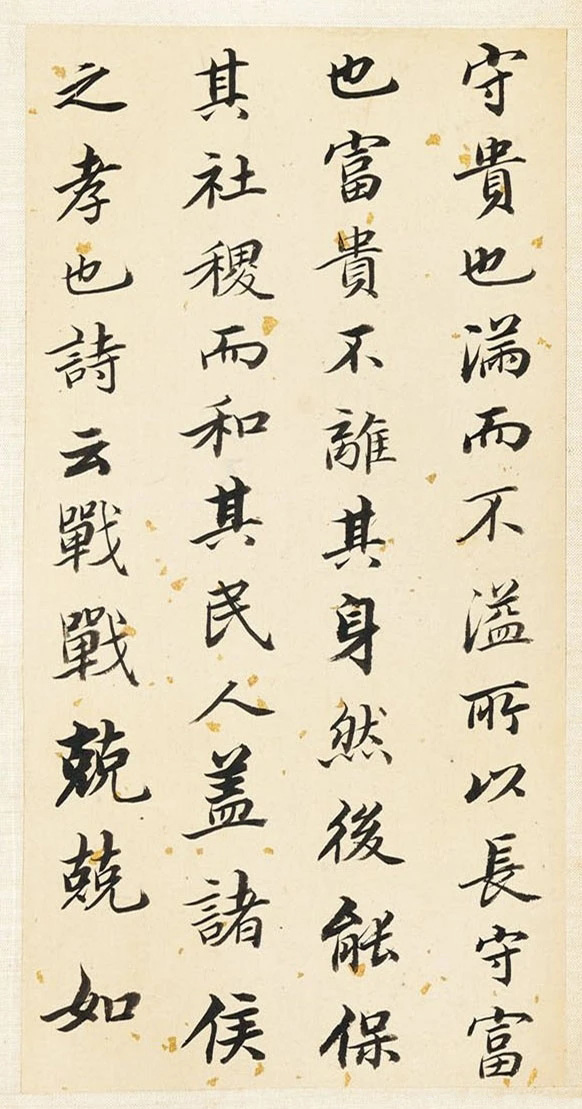 守貴也滿而不溢所以長守富
也富貴不離其身然後能保
其社稷而和其民人盖諸侯
之孝也詩云戰戰兢兢如